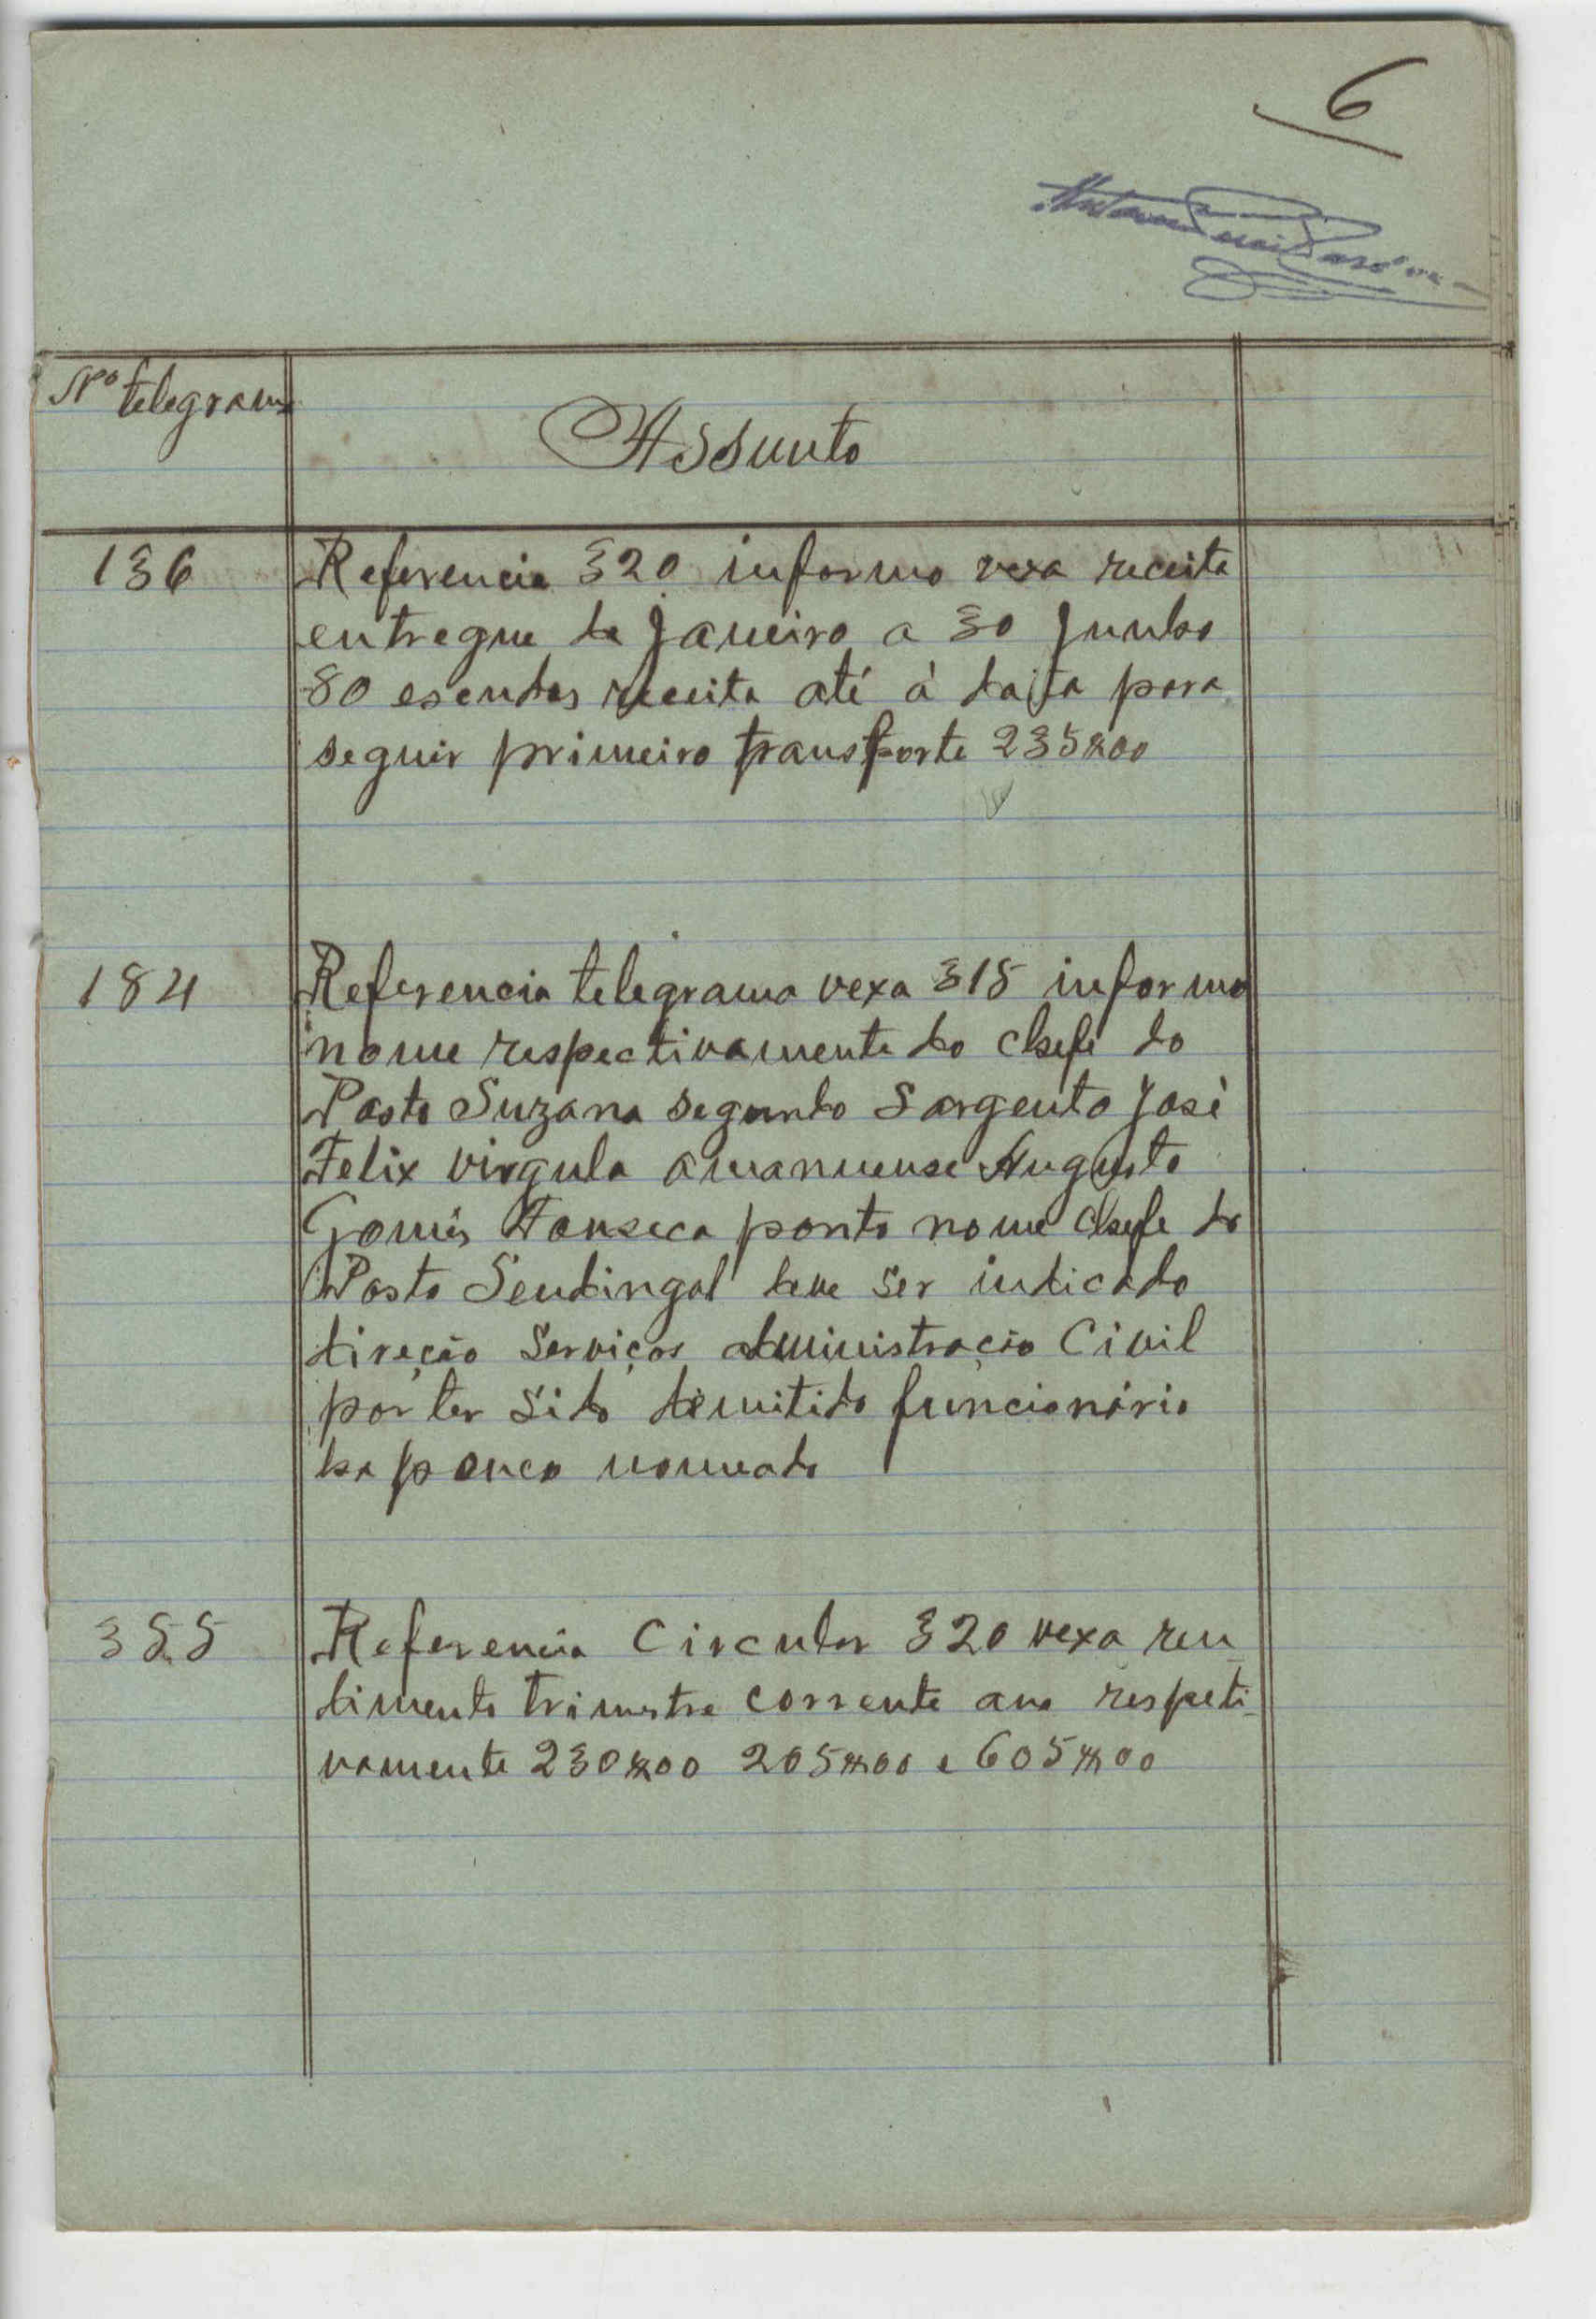 6
Nº telegrama
Assunto
136 Referencia 320 informo vexa receita
entregue de Janeiro a 30 Junho
80 escudos receita até á data para
seguir primeiro transporte 235$00
184 Referencia telegrama vexa 315 informo
nome respectivamente do chefe do
Posto Suzana segundo Sargento José
Felix virgula amanuense Augusto
Gomes Fonseca ponto nome chefe do
Posto Sendingal deve ser indicado
direção Serviços administração Civil
por ter sido demitido funcionário
ha pouco nomeado
355 Referencia Circular 320 vexa ren
dimento trimestre corrente ano respeti-
vamente 230$00 205$00 e 605$00